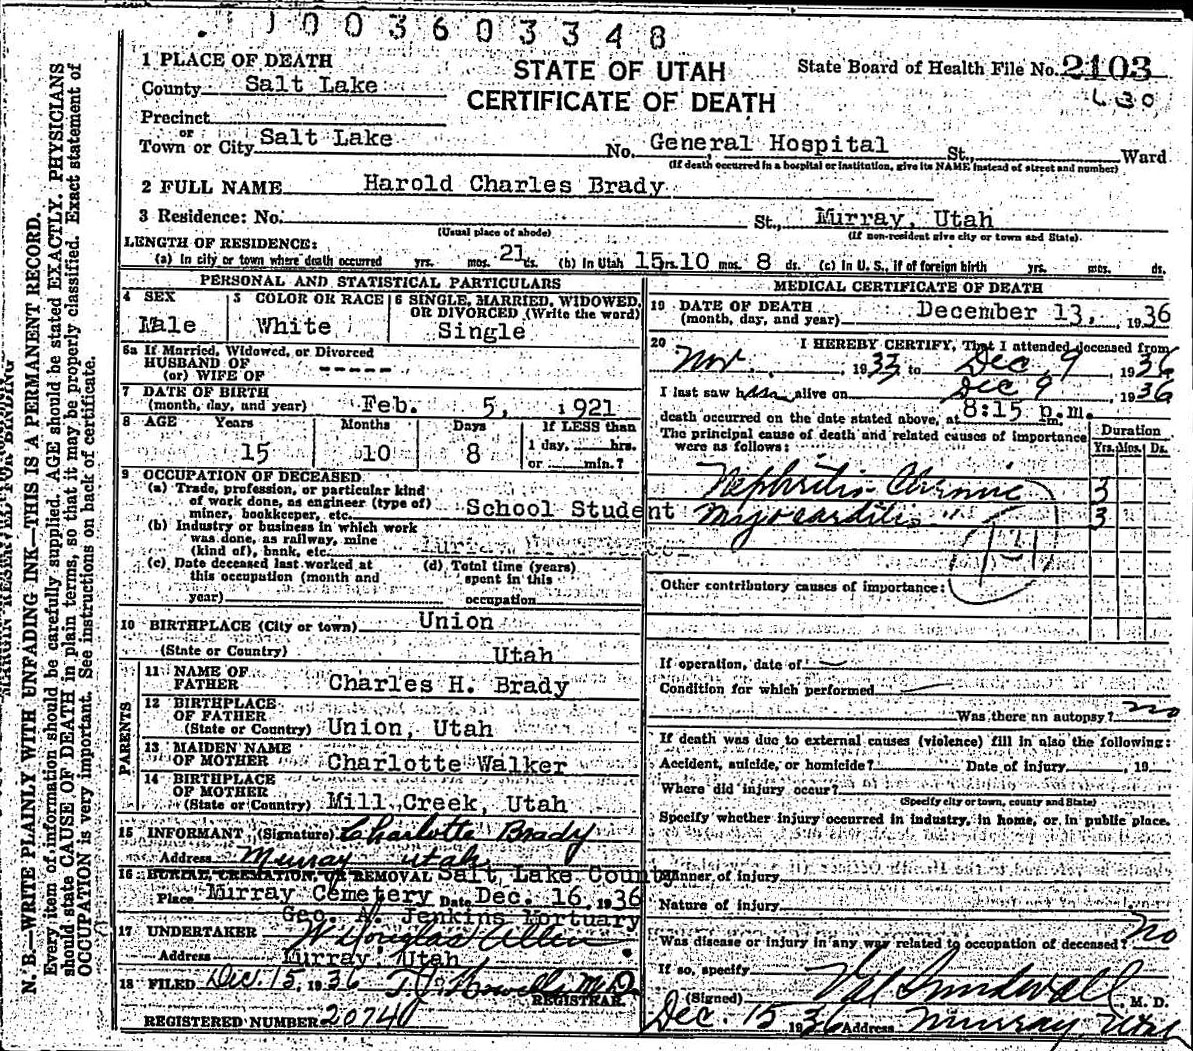 1003603348
1 PLACE OF DEATH
County Salt Lake
STATE OF UTAH
CERTIFICATE OF DEATH
State Board of Health File No. 2103
Precinct
or
Town or City Salt Lake No. General Hospital St., Ward
(If death occurred in a hospital or institution, give its NAME instead of street and number)
2 FULL NAME Harold Charles Brady
3 Residence: No. St., Murray, Utah
(Usual place of abode) (If non-resident give city or town and State).
LENGTH OF RESIDENCE:
(a) In city or town where death occurred yrs. mos. 21 ds. (b) In Utah 15 yrs. 10 mos. 8 ds. (c) In U. S., if of foreign birth yrs. mos. ds.
PERSONAL AND STATISTICAL PARTICULARS
4 SEX
Male
3 COLOR OR RACE
White
6 SINGLE, MARRIED, WIDOWED, OR DIVORCED (Write the word)
Single
6a If Married, Widowed, or Divorced
HUSBAND OF
(or) WIFE OF -----
7 DATE OF BIRTH
(month, day, and year) Feb. 5, 1921
8 AGE Years Months Days If LESS than
15 10 8 1 day, hrs.
or min.?
9 OCCUPATION OF DECEASED
(a) Trade, profession, or particular kind
of work done, as engineer (type of)
miner, bookkeeper, etc. School Student
(b) Industry or business in which work
was done, as railway, mine
(kind of), bank, etc.
(c) Date deceased last worked at
this occupation (month and
year)
(d) Total time (years)
spent in this
occupation
10 BIRTHPLACE (City or town) Union
(State or Country) Utah
PARENTS
11 NAME OF
FATHER Charles H. Brady
12 BIRTHPLACE
OF FATHER
(State or Country) Union, Utah
13 MAIDEN NAME
OF MOTHER Charlotte Walker
14 BIRTHPLACE
OF MOTHER
(State or Country) Mill Creek, Utah
15 INFORMANT (Signature) Charlotte Brady
Address Murray Utah
16 BURIAL, CREMATION, OR REMOVAL Salt Lake County
Place Murray Cemetery Date Dec. 16, 1936
Geo. A. Jenkins Mortuary
17 UNDERTAKER W Douglas Allen
Address Murray Utah
18 FILED Dec. 15, 1936 T. J. Howells M.D.
REGISTRAR.
REGISTERED NUMBER 20740
MEDICAL CERTIFICATE OF DEATH
19 DATE OF DEATH
(month, day, and year) December 13, 1936
20 I HEREBY CERTIFY, That I attended deceased from
Nov. , 1933 to Dec 9 1936
I last saw him alive on Dec 9 , 1936
death occurred on the date stated above, at 8:15 p.m.
The principal cause of death and related causes of importance
were as follows:
Duration
Yrs. Mos. Ds.
Nephritis Chronic 3
Myocarditis " 3
Other contributory causes of importance:
If operation, date of
Condition for which performed
Was there an autopsy? no
If death was due to external causes (violence) fill in also the following:
Accident, suicide, or homicide? Date of injury , 19
Where did injury occur?
(Specify city or town, county and State)
Specify whether injury occurred in industry, in home, or in public place.
Manner of injury
Nature of injury
Was disease or injury in any way related to occupation of deceased? no
If so, specify
(Signed) Sundwall M. D.
Dec. 15 1936 Address Murray, Utah
N. B.—WRITE PLAINLY WITH UNFADING INK—THIS IS A PERMANENT RECORD.
Every item of information should be carefully supplied. AGE should be stated EXACTLY. PHYSICIANS
should state CAUSE OF DEATH in plain terms, so that it may be properly classified. Exact statement of
OCCUPATION is very important. See instructions on back of certificate.